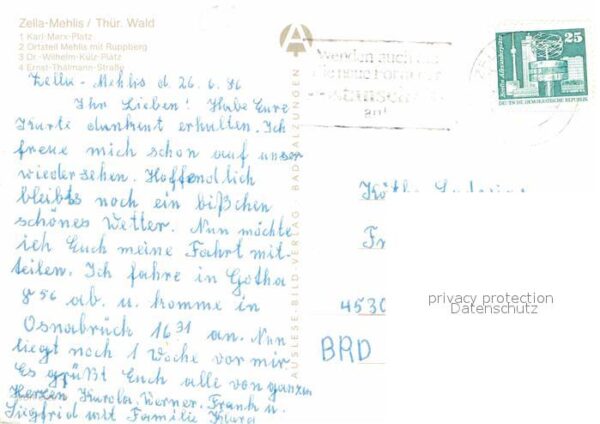 Zella-Mehlis / Thür. Wald
1 Karl-Marx-Platz
2 Ortsteil Mehlis mit Ruppberg
3 Dr.-Wilhelm-Külz-Platz
4 Ernst-Thälmann-Straße
Zella-Mehlis d. 26.6.86
Ihr Lieben! Habe Eure
Karte dankent erhalten. Ich
freue mich schon auf unser
wiedersehen. Hoffendlich
bleibts noch ein bißchen
schönes Wetter. Nun möchte
ich Euch meine Fahrt mit-
teilen. Ich fahre in Gotha
8 56 ab. u. komme in
Osnabrück 16 31 an. Nun
liegt noch 1 Woche vor mir
Es grüßt Euch alle von ganzen
Herzen Karola, Werner, Frank u.
Siegfried mit Familie Klara
AUSLESE-BILD-VERLAG · BAD SALZUNGEN
Wenden auch
die neue Form der
an!
25
DEUTSCHE DEMOKRATISCHE REPUBLIK
Käthe
Fr
4530
BRD
privacy protection
Datenschutz